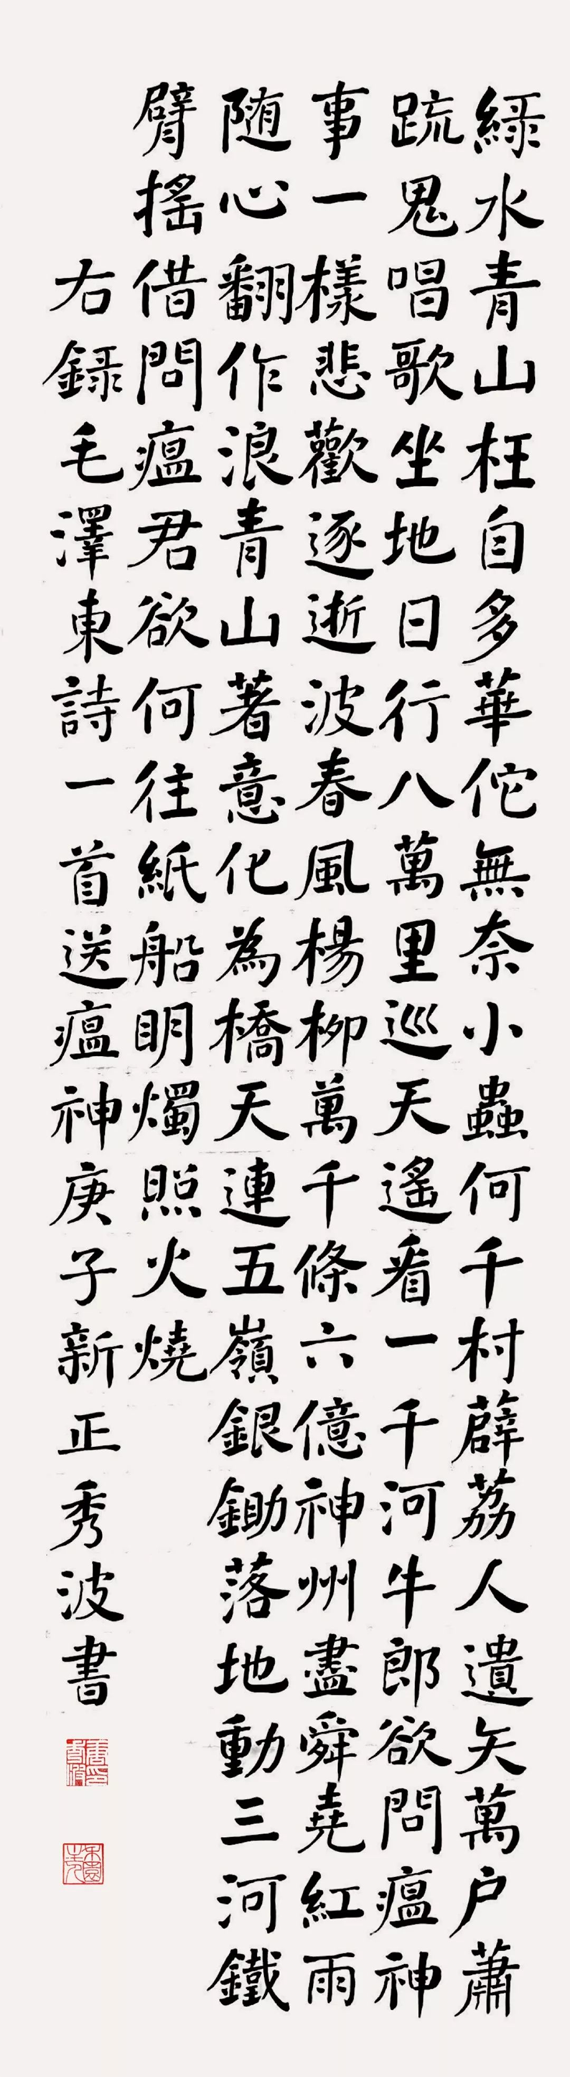 綠水青山枉自多華佗無奈小蟲何千村薜荔人遺矢萬户蕭
疏鬼唱歌坐地日行八萬里巡天遙看一千河牛郎欲問瘟神
事一樣悲歡逐逝波春風楊柳萬千條六億神州盡舜堯紅雨
随心翻作浪青山著意化為橋天連五嶺銀鋤落地動三河鐵
臂搖借問瘟君欲何往紙船明燭照火燒
右録毛澤東詩一首送瘟神庚子新正秀波書